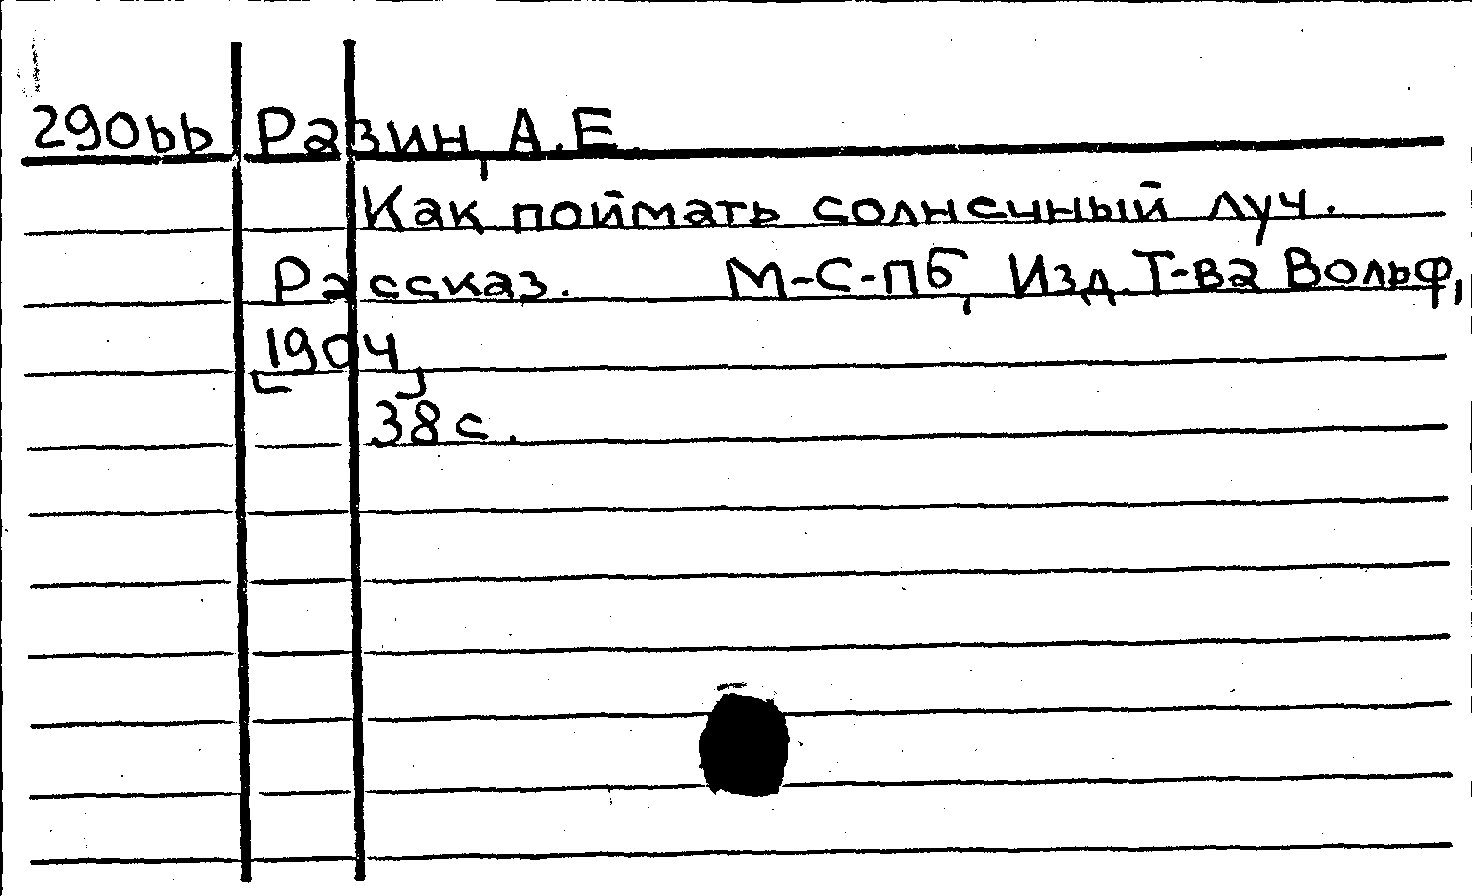 290ьь Разин, А.Е.
Как поймать солнечный луч.
Рассказ. М-С-Пб, Изд. Т-ва Вольф,
[1904]
38 с.